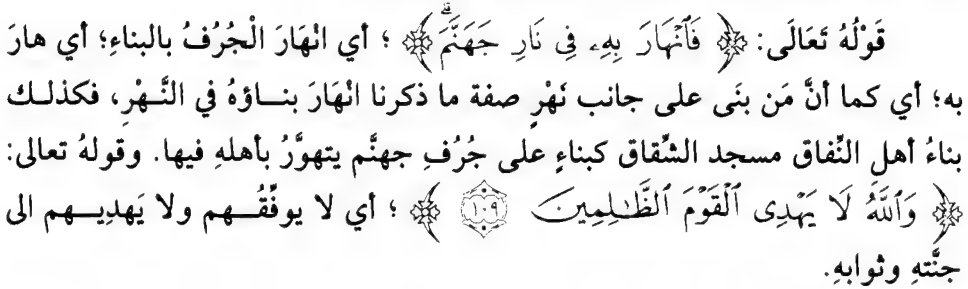 قَوْلُهُ تَعَالَى: ﴿ فَٱنْهَارَ بِهِۦ فِى نَارِ جَهَنَّمَۗ ﴾ ؛ أي انْهَارَ الْجُرُفُ بالبناءِ؛ أي هارَ
به؛ أي كما أنَّ مَن بنَى على جانب نَهْرٍ صفة ما ذكرنا انْهَارَ بناؤهُ في النَّهْرِ، فكذلك
بناءُ أهلِ النِّفاق مسجد الشِّقاق كبناءٍ على جُرُفِ جهنَّم يتهوَّرُ بأهلهِ فيها. وقولهُ تعالى:
﴿ وَٱللَّهُ لَا يَهْدِى ٱلْقَوْمَ ٱلظَّٰلِمِينَ ١٠٩ ﴾ ؛ أي لا يوفِّقُهم ولا يَهدِيهم الى
جنَّتهِ وثوابهِ.